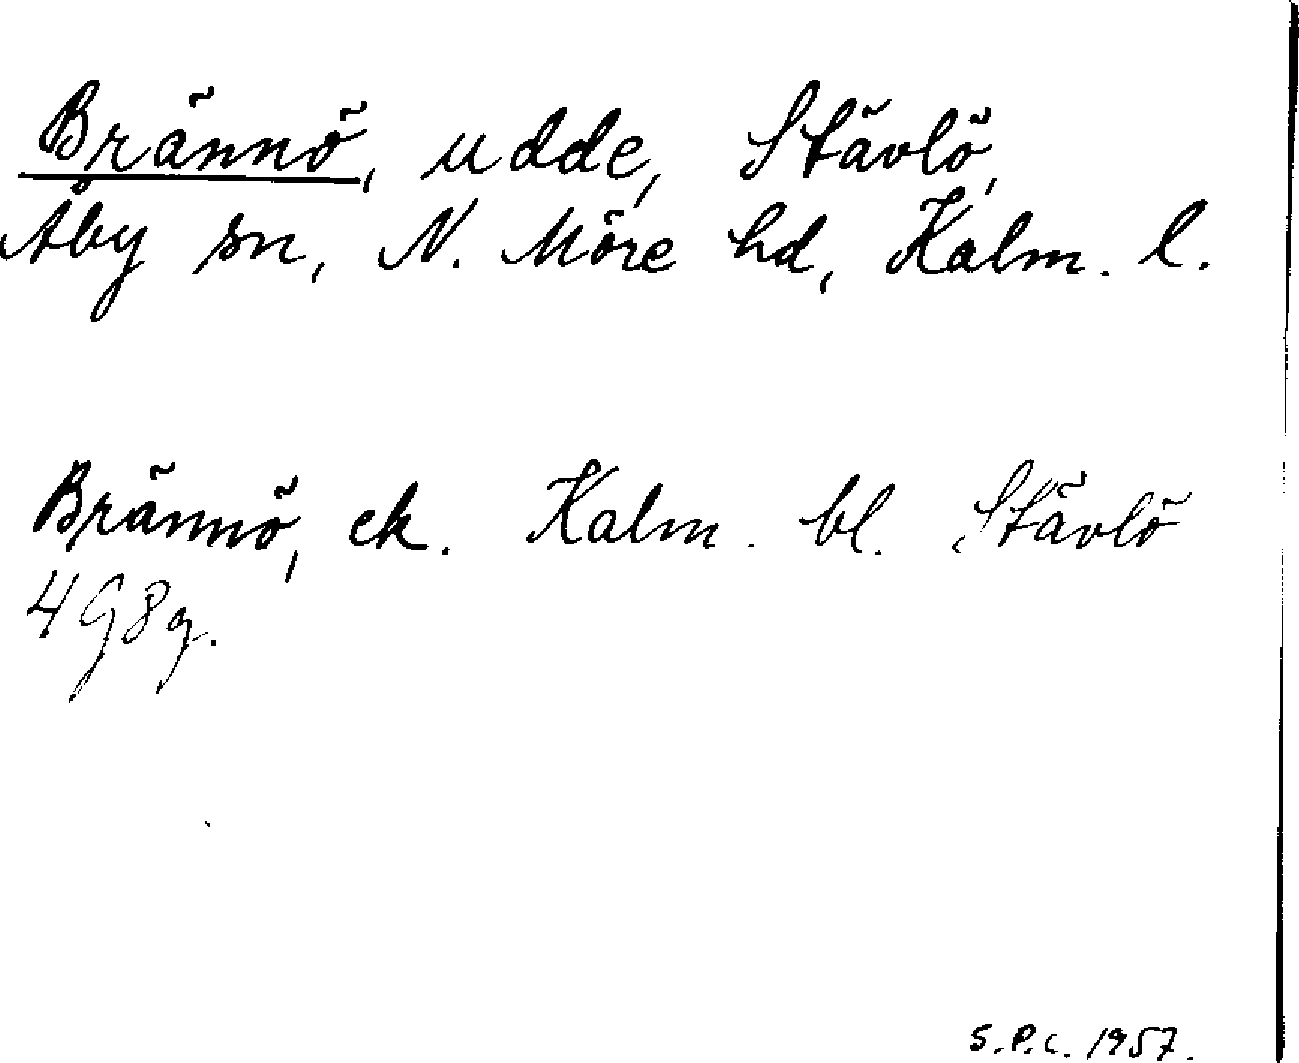 Brännö, udde, Stävlö,
Åby sn, N. Möre hd, Kalm. l.
Brännö, ek. Kalm. bl. Stävlö
4 G 8 g.
S.P.C. 1957.